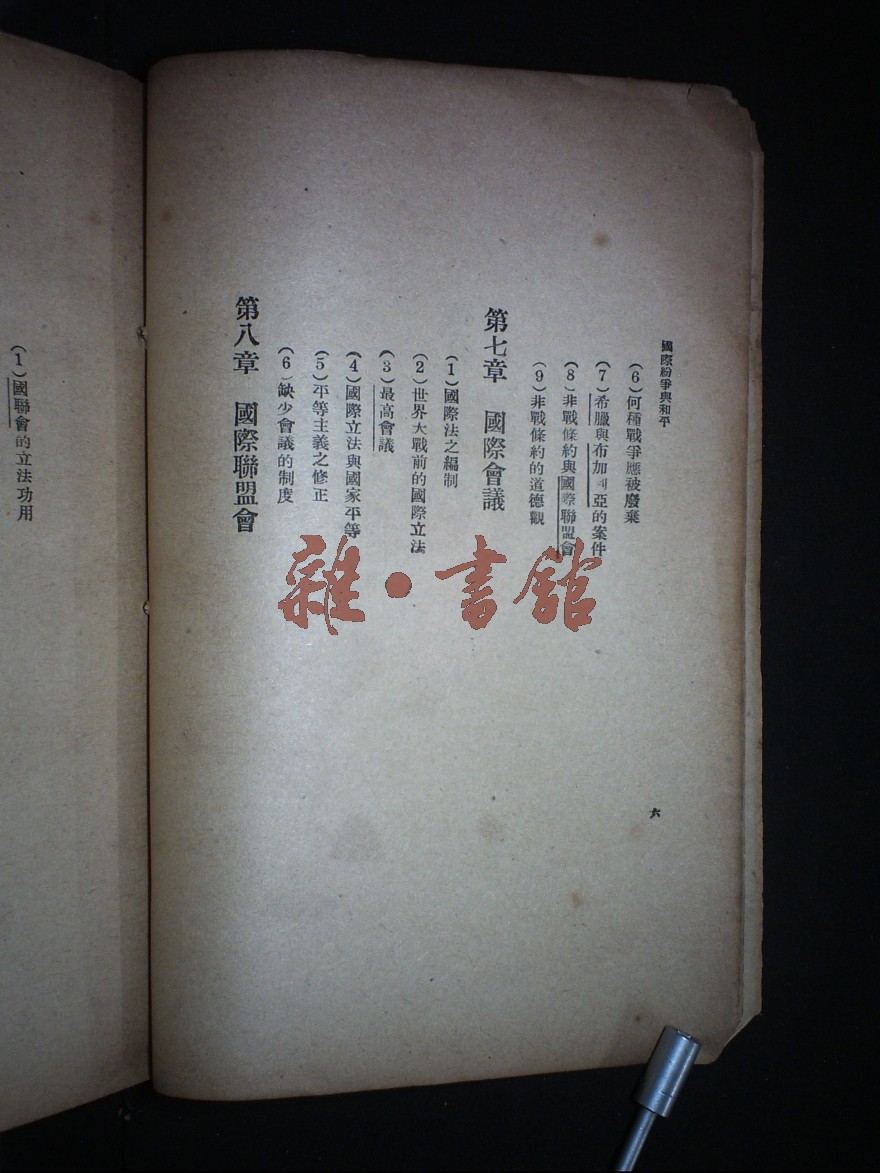 國際紛爭與和平
(6)何種戰爭應被廢棄
(7)希臘與布加利亞的案件
(8)非戰條約與國際聯盟會
(9)非戰條約的道德觀
第七章 國際會議
(1)國際法之編制
(2)世界大戰前的國際立法
(3)最高會議
(4)國際立法與國家平等
(5)平等主義之修正
(6)缺少會議的制度
第八章 國際聯盟會
六
(1)國聯會的立法功用
雜·書館